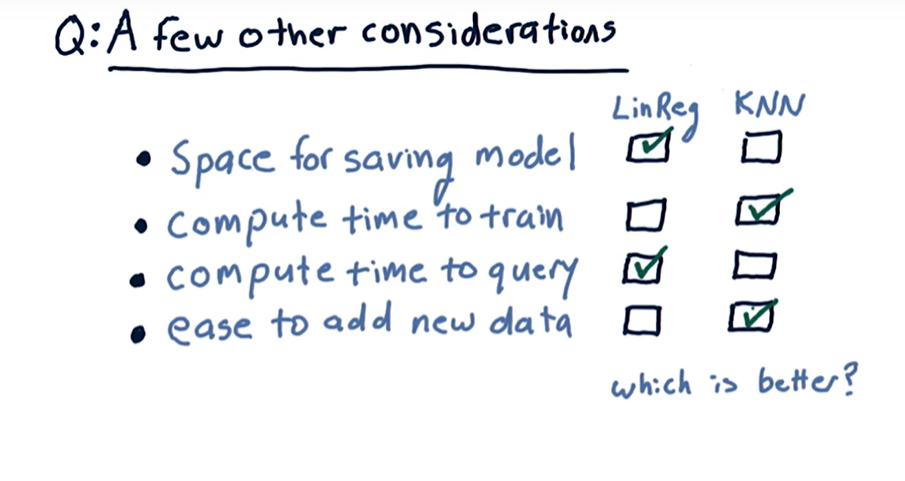 Q: A few other considerations
LinReg KNN
• Space for saving model ☑ ☐
• compute time to train ☐ ☑
• compute time to query ☑ ☐
• ease to add new data ☐ ☑
which is better?